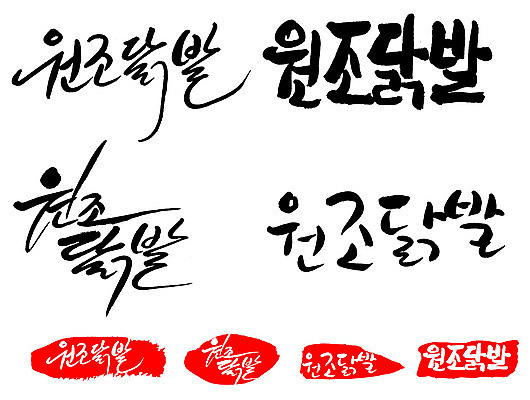 원조닭발
원조닭발
원조
닭발
원조닭발
원조닭발
원조
닭발
원조닭발
원조닭발